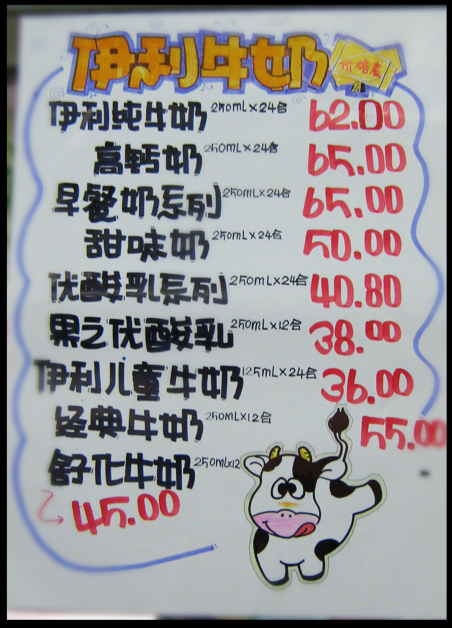 伊利牛奶 价格表
伊利纯牛奶 250mL×24合 62.00
高钙奶 250mL×24合 65.00
早餐奶系列 250mL×24合 65.00
甜味奶 250mL×24合 50.00
优酸乳系列 250mL×24合 40.80
果之优酸乳 250mL×12合 38.00
伊利儿童牛奶 125mL×24合 36.00
经典牛奶 250mL×12合 55.00
舒化牛奶 250mL×12
45.00